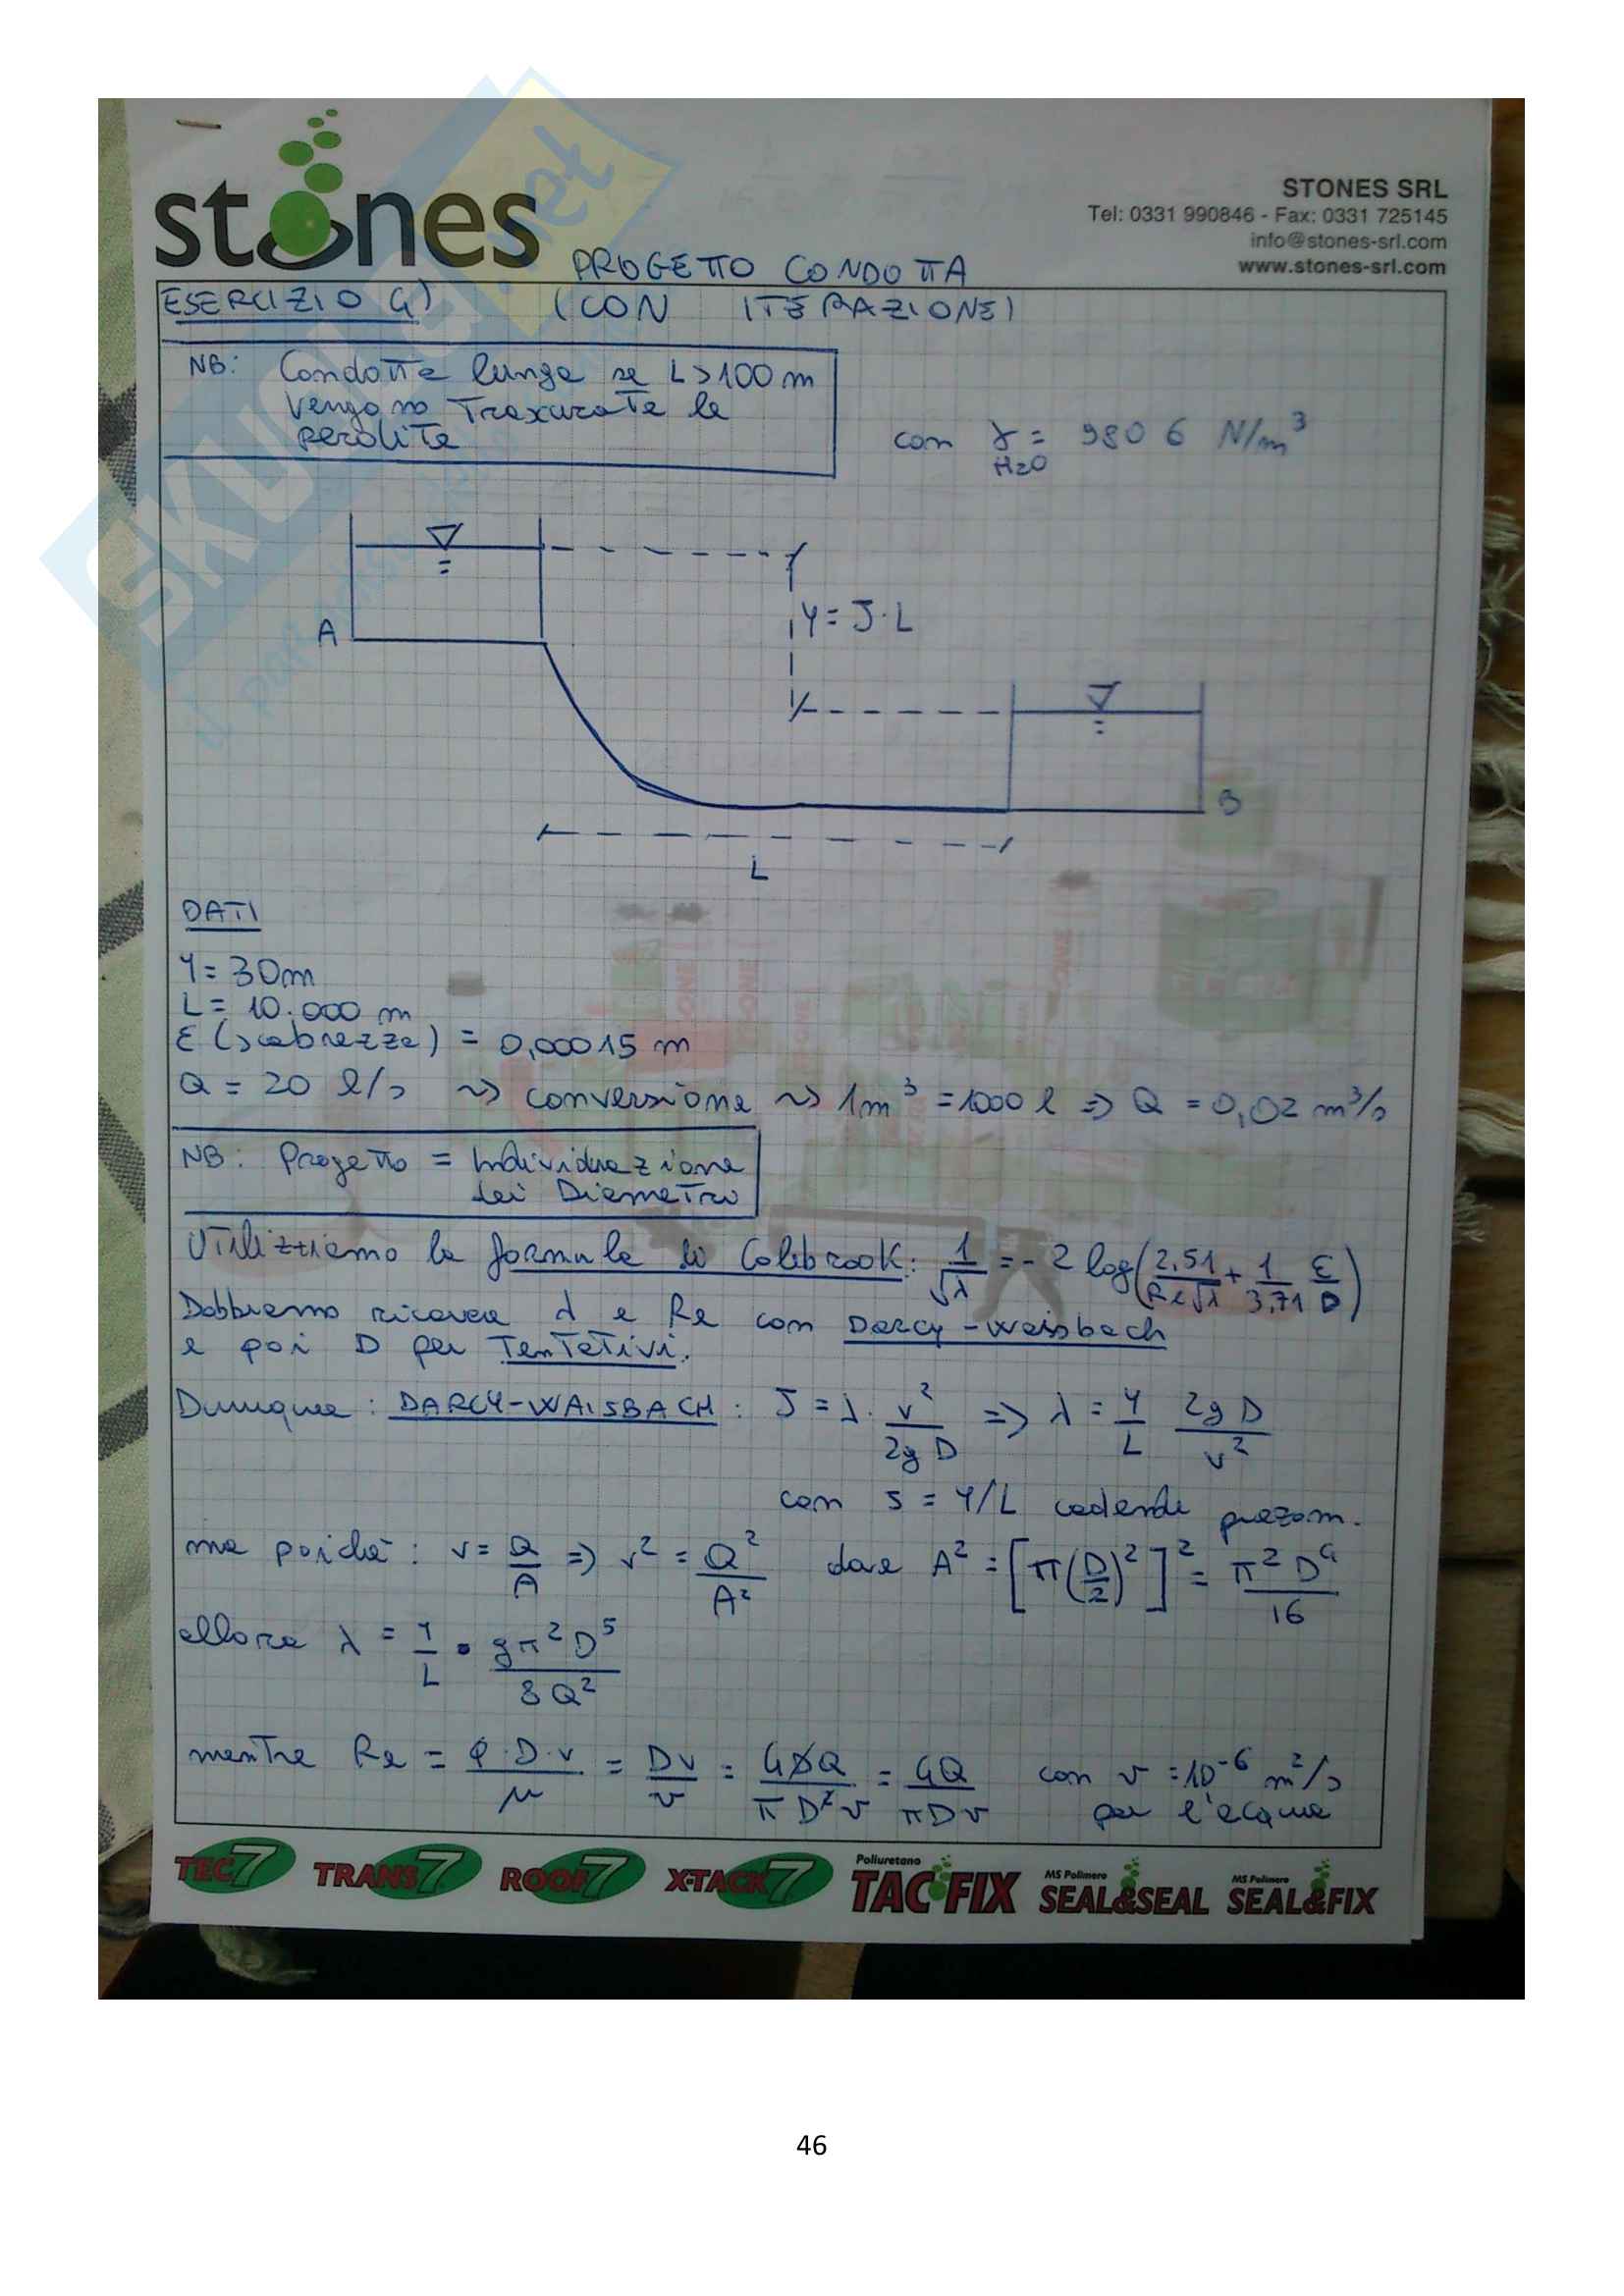 stones
STONES SRL
Tel: 0331 990846 - Fax: 0331 725145
info@stones-srl.com
www.stones-srl.com
PROGETTO CONDOTTA
ESERCIZIO 4) (CON ITERAZIONE)
NB: Condotta lunga se L>100 m
vengono trascurate le
perdite
con γ = 9806 N/m³
H2O
A
Y = J·L
B
L
DATI
Y = 30m
L = 10.000 m
ε (scabrezza) = 0,00015 m
Q = 20 l/s ~> conversione ~> 1m³ = 1000 l => Q = 0,02 m³/s
NB: Progetto = Individuazione
dei Diametro
Utilizziamo la formula di Colebrook: 1/√λ = -2 log(2,51/Re√λ + 1/3,71 ε/D)
Dobbiamo ricavare λ e Re con Darcy-Weissbach
e poi D per Tentativi.
Dunque: DARCY-WAISBACH: J = λ· v²/2gD => λ = Y/L 2gD/v²
con J = Y/L cadente piezom.
ma poiché: v = Q/A => v² = Q²/A² dove A² = [π(D/2)²]² = π²D⁴/16
allora λ = Y/L · gπ²D⁵/8Q²
mentre Re = ρ·D·v/μ = Dv/ν = 4DQ/πD²ν = 4Q/πDν con ν = 10⁻⁶ m²/s
per l'acqua
TEC7 TRANS7 ROOF7 X-TACK7 Poliuretano TAC FIX MS Polimero SEAL&SEAL MS Polimero SEAL&FIX
46